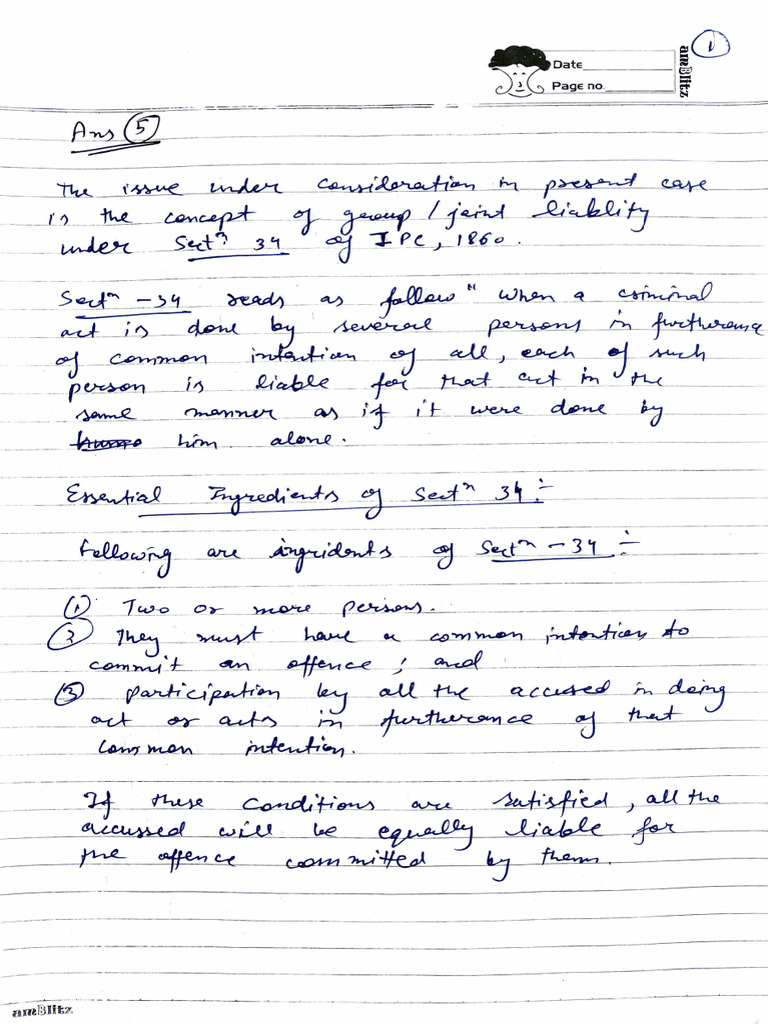 1
amBlitz
Date
Page no.
Ans 5
The issue under consideration in present case
is the concept of group / joint liablity
under Sectn 34 of IPC, 1860.
Sectn - 34 reads as follow " when a criminal
act is done by several persons in furtherance
of common intention of all, each of such
person is liable for that act in the
same manner as if it were done by
him alone.
Essential Ingredients of Sectn 34 :-
Following are ingridents of Sectn - 34 :-
1 Two or more persons.
2 They must have a common intention to
commit an offence ; and
3 participation by all the accused in doing
act or acts in furtherance of that
common intention.
If these conditions are satisfied, all the
accussed will be equally liable for
the offence committed by them.
amBlitz